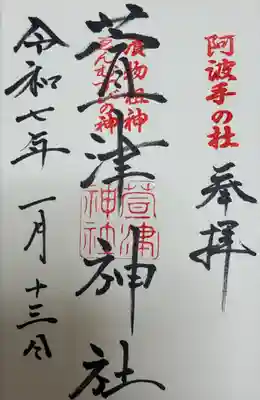 阿波手の社
奉拝
萱津神社
漬物祖神
えんむすびの神
萱津
神社
令和七年 一月 十三日